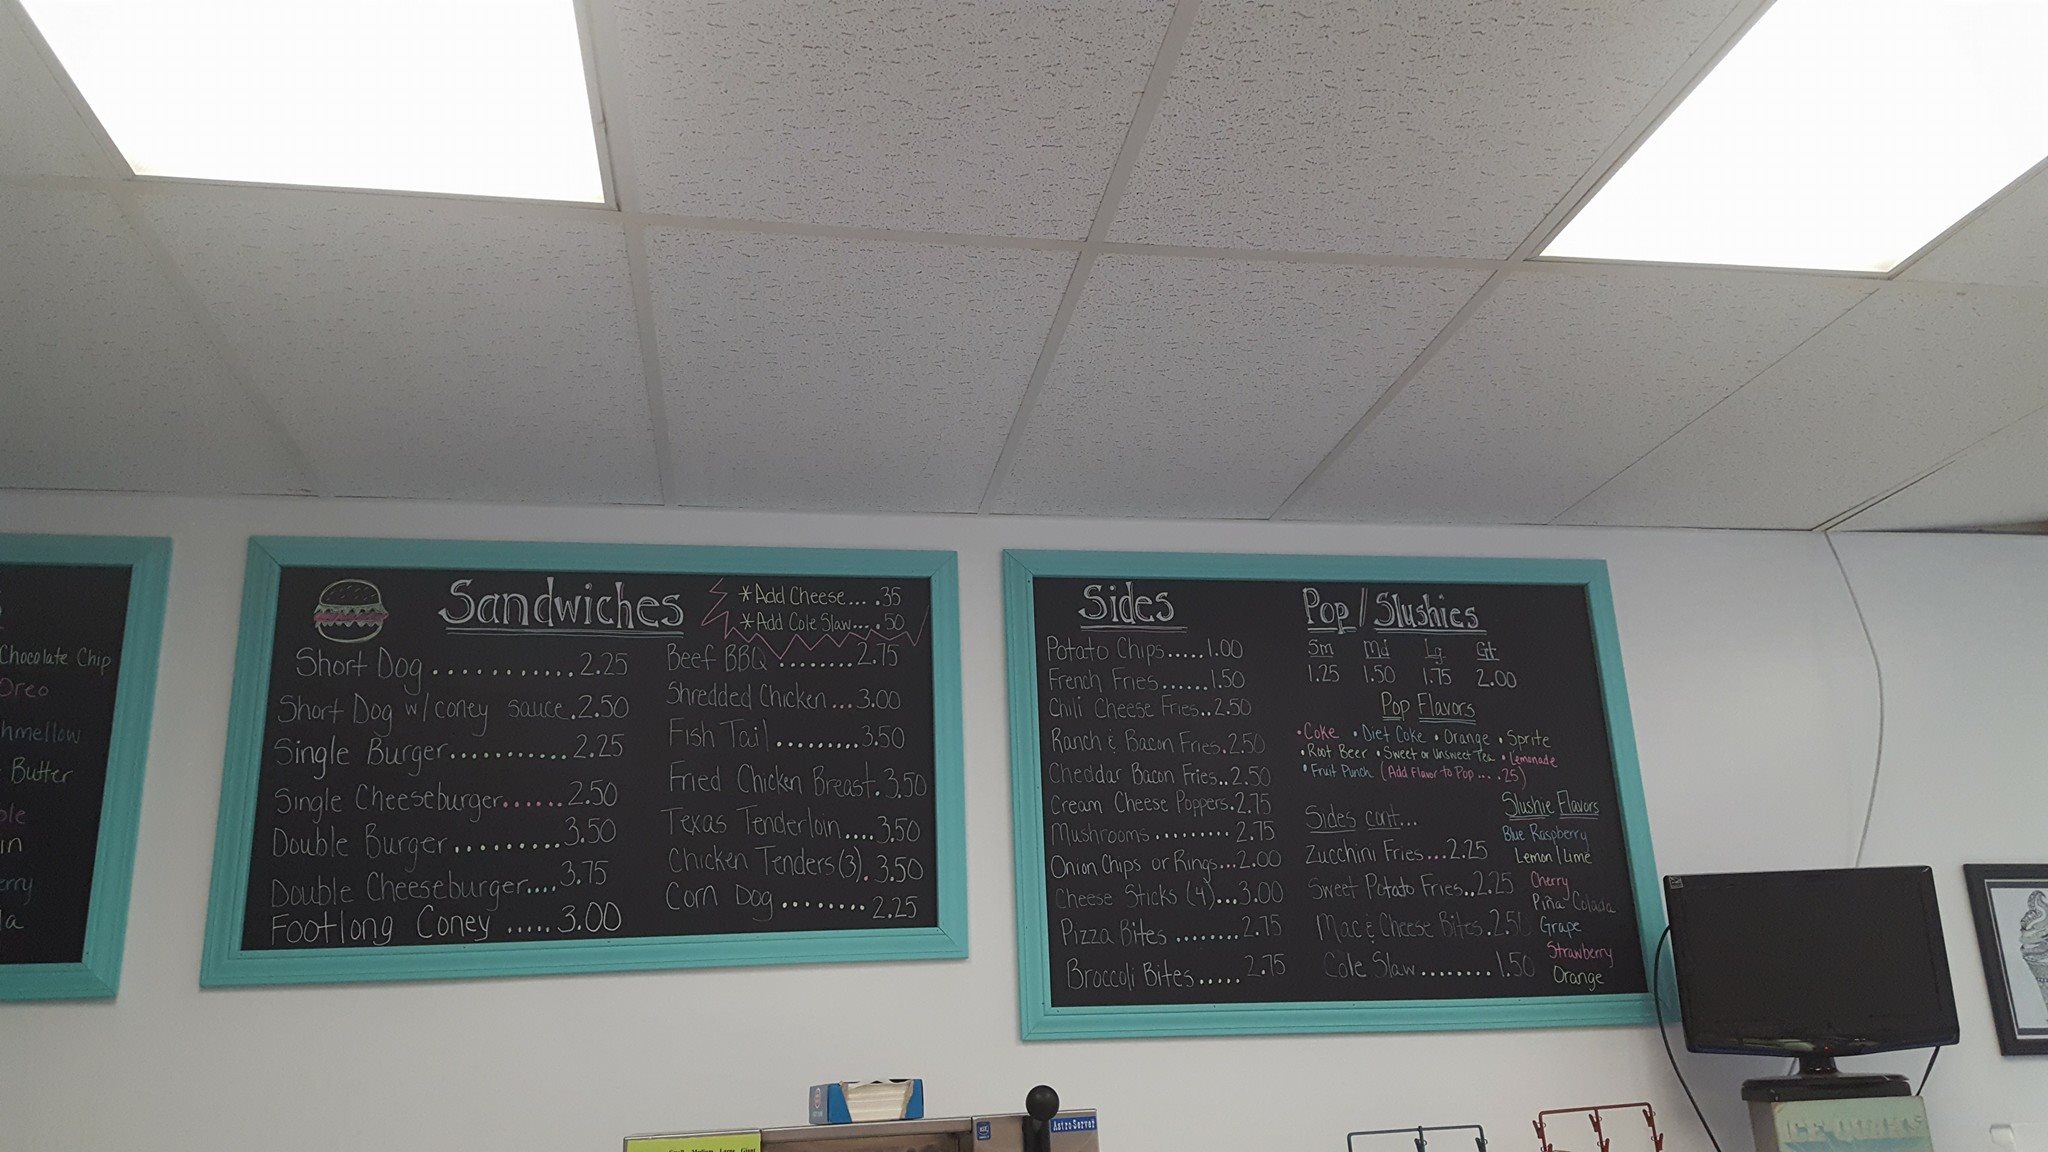 Chocolate Chip
Oreo
Butter
Sandwiches
*Add Cheese... .35
*Add Cole Slaw... .50
Short Dog............2.25
Short Dog w/coney sauce.2.50
Single Burger...........2.25
Single Cheeseburger......2.50
Double Burger.........3.50
Double Cheeseburger....3.75
Footlong Coney .....3.00
Beef BBQ .........2.75
Shredded Chicken ...3.00
Fish Tail .........3.50
Fried Chicken Breast.3.50
Texas Tenderloin....3.50
Chicken Tenders(3).3.50
Corn Dog........2.25
Sides
Potato Chips.....1.00
French Fries......1.50
Chili Cheese Fries..2.50
Ranch & Bacon Fries.2.50
Cheddar Bacon Fries..2.50
Cream Cheese Poppers.2.75
Mushrooms.........2.75
Onion Chips or Rings...2.00
Cheese Sticks (4)...3.00
Pizza Bites ........2.75
Broccoli Bites.....2.75
Pop // Slushies
Sm Md Lg Gt
1.25 1.50 1.75 2.00
Pop Flavors
•Coke •Diet Coke •Orange •Sprite
•Root Beer •Sweet or Unsweet Tea •Lemonade
•Fruit Punch (Add Flavor to Pop... .25)
Sides cont...
Zucchini Fries...2.25
Sweet Potato Fries..2.25
Mac & Cheese Bites.2.50
Cole Slaw........1.50
Slushie Flavors
Blue Raspberry
Lemon/Lime
Cherry
Piña Colada
Grape
Strawberry
Orange
AstroServer